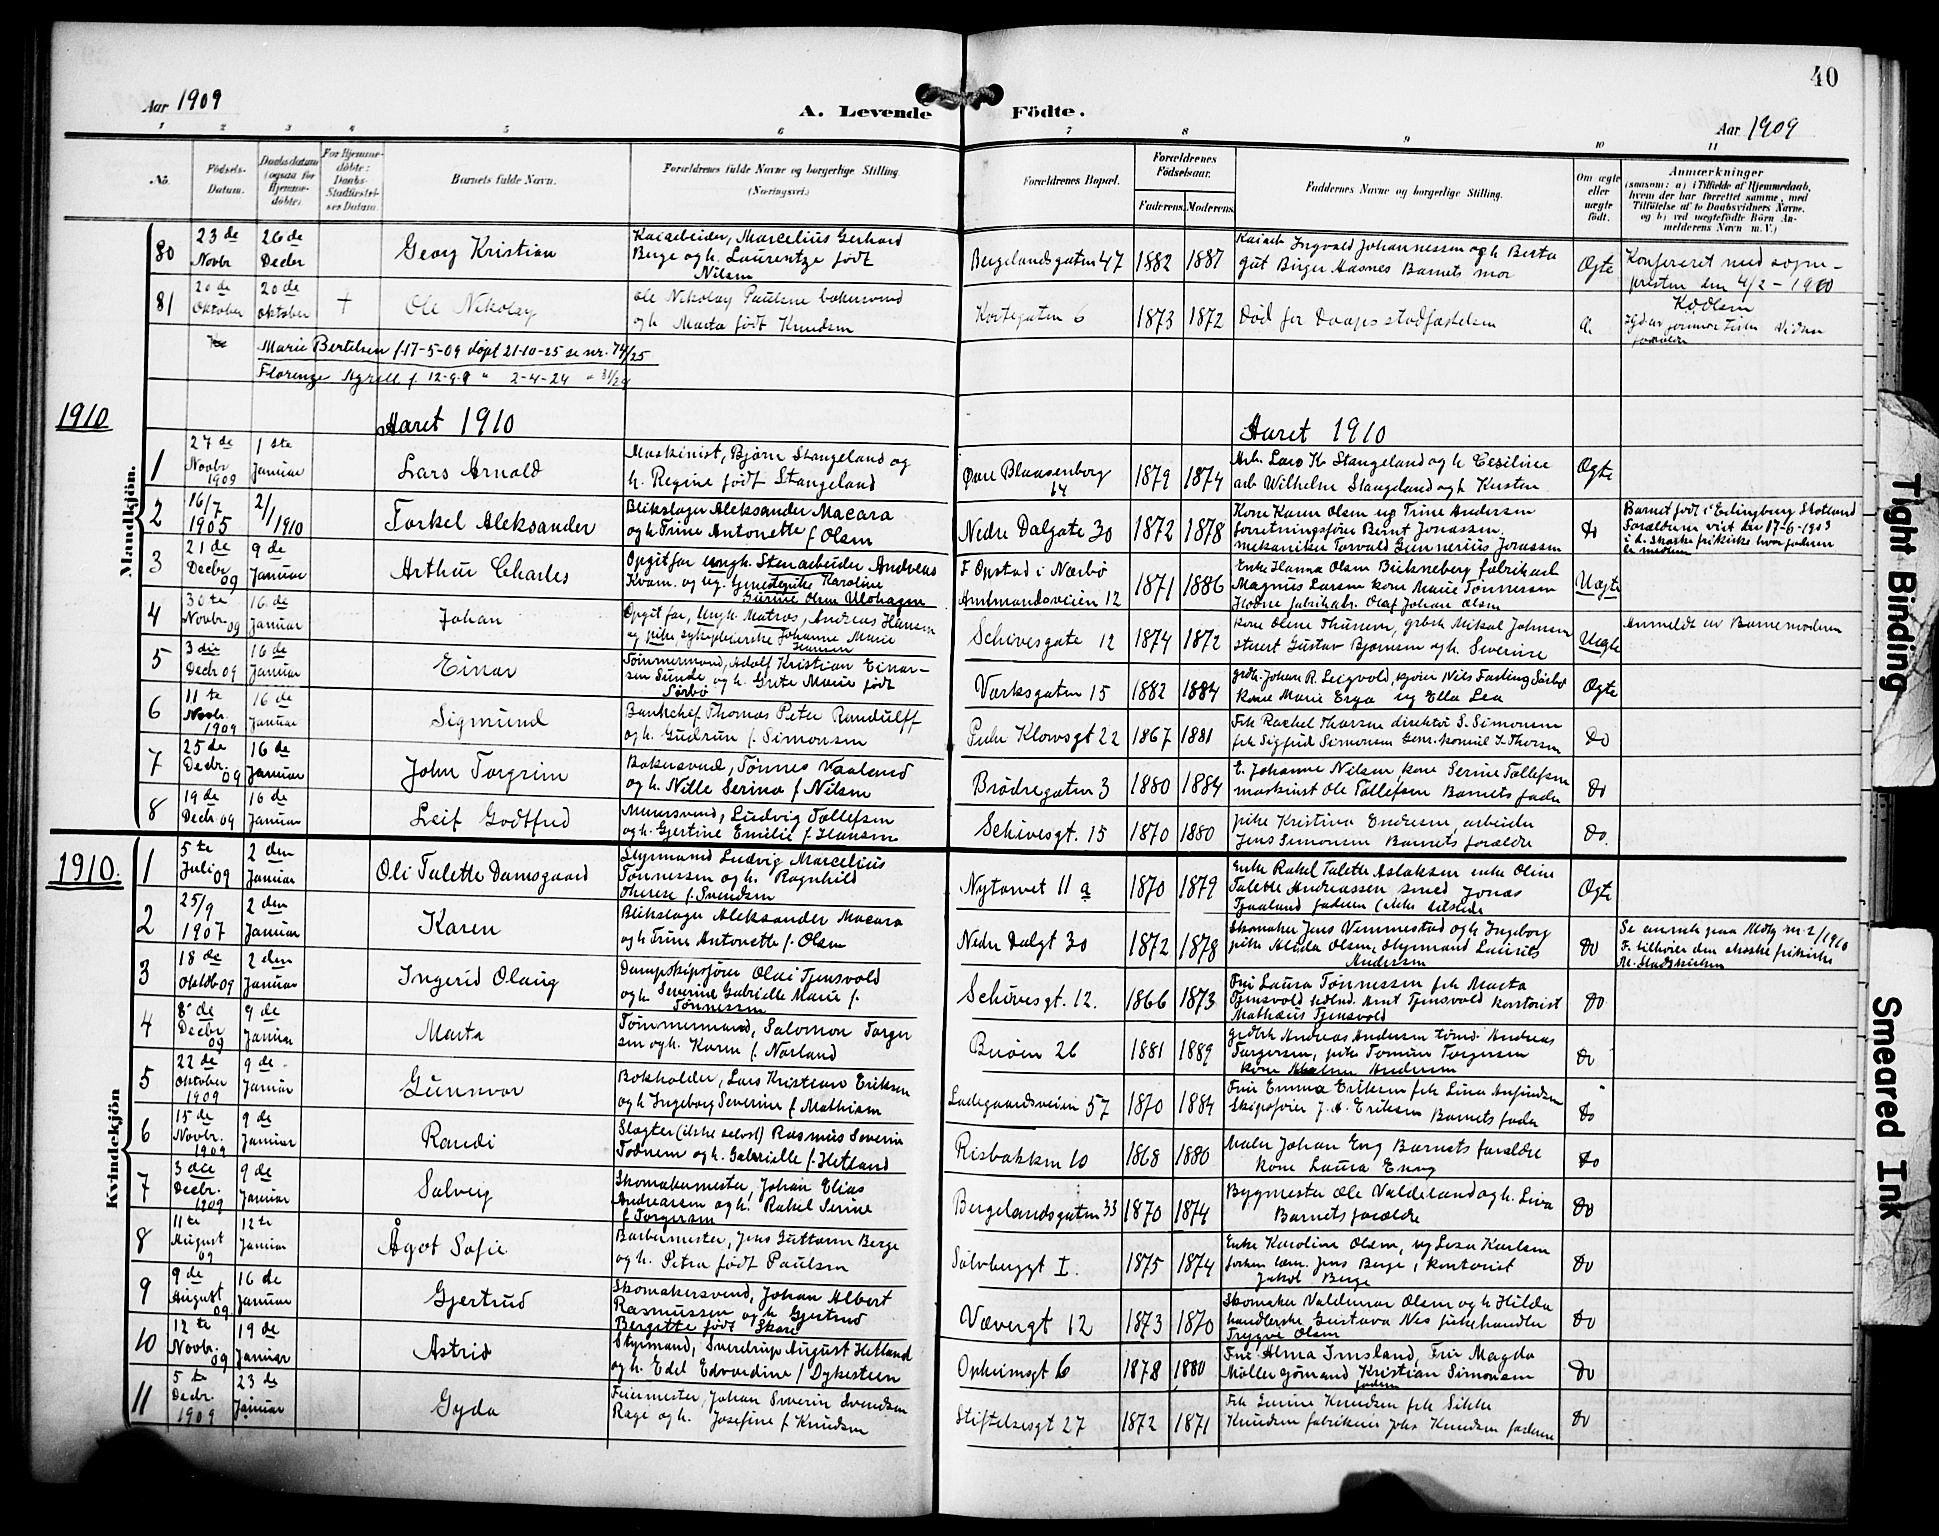 40
Aar 1909
A. Levende Födte.
Aar 1909
1 2 3 4 5 6 7 8 9 10 11
No.
Födsels-
Datum.
Daabsdatum
(ogsaa for
Hjemme-
døbte).
For Hjemme-
døbte:
Daabs-
Stadfæstel-
ses Datum.
Barnets fulde Navn.
Forældrenes fulde Navne og borgerlige Stilling
(Næringsvei.)
Forældrenes Bopæl.
Forældrenes
Födselsaar.
Faderens. Moderens.
Faddernes Navne og borgerlige Stilling.
Om ægte
eller
uægte
født.
Anmærkninger
(saasom: a) i Tilfælde af Hjemmedaab,
hvem der har forrettet samme, med
Tilføielse af to Daabsvidners Navne,
og b) ved uægtefødte Börn An-
melderens Navn m. V.)
80
23 de
Novbr
26 de
Decbr
Georg Kristian
Kaiarbeider, Marcelius Gerhard
Berge og h. Laurentze født
Nilsen
Bergelandsgaten 47
1882 1887
Kaiarb Ingvald Johannessen og h Berta
gut Birger Aasnes Barnets mor
Ægte
Konfereret med sogne-
presten den 4/2 - 1910
81
20 de
Oktober
20 de
oktober
+
Ole Nikolay
Ole Nikolay Paulsen bakersvend
og h. Marta født Knudsen
Kortegaten 6
1873 1872
Død før Daapsstadfæstelsen
Marie Bertelsen f. 17-5-09 døpt 21-10-25 se nr. 74/25
Florenze Agrell f. 12-9-9 " 2-4-24 " 31/24
1910
Aaret 1910
Aaret 1910
Mandkjön.
1
27 de
Novbr
1909
1 ste
Januar
Lars Arnold
Maskinist, Bjørn Stangeland og
h. Regine født Stangeland
Øvre Blaasenborg
14
1879 1874
Arb. Lars K. Stangeland og h Cesiline
arb Wilhelm Stangeland og h Kirsten
Ægte
2
16/7
1905
2/1 1910
Torkel Aleksander
Blikslager Aleksander Macara
og h Trine Antonette f Olsen
Nedre Dalgate 30
1872 1878
Kone Karen Olsen og Trine Andersen
forretningsfører Bernt Jonassen,
mekaniker Torvald Gunnerius Jonassen
do
3
21 de
Decbr
09
9 de
Januar
Arthur Charles
Opgit far ungk. Stenarbeider Andreas
Kvam. og ug. Karoline
Gurine Olsen Ulvhagen
F Opstad i Nærbø
Amtmandsveien 12
1871 1886
Enke Hanna Olsen Birkneberg fabrikarb
Magnus Larsen kone Marie Tønnessen
Hodne fabrikarb. Olaf Johan Olsen
Uægte
4
30 te
Novbr 09
16 de
Januar
Johan
Opgit far, Ungk. Matros, Andreas Hansen
og pike sykepleierske Johanne Marie
Hansen
Schivesgate 12
1874 1872
stuert Gustav Bjørnsen og h. Severine
Uægte
Anmeldt av Barnemoderen
5
3 die
Decbr 09
16 de
Januar
Einar
Tømmermand, Adolf Kristian Einar-
sen Sunde og h. Grete Marie født
Sørbø
Værksgaten 15
1882 1884
kone Marie Erga og Ella Lea
Ægte
6
11 te
Novbr.
1909
16 de
Januar
Sigmund
Bankchef Thomas Peter Randulff
og h. Gudrun f. Simonsen
Peder Klowsgt 22
1867 1881
Frk Rachel Thorsen direktør S. Simonsen
frk Sigfrid Simonsen
Do
7
25 de
Decbr.
09
16 de
Januar
John Torgrim
Bakersvend, Tønnes Vaaland
og h. Nille Serina f Nilsen
Brødregaten 3
1880 1884
E. Johanne Nilsen, kone Serine Tollefsen
maskinist Ole Tollefsen Barnets fader
Do
8
19 de
Decbr 09
16 de
Januar
Leif Godtfred
Murersvend, Ludvig Tollefsen
og h. Gjertine Emilie f Hansen
Schivesgt. 15
1870 1880
pike Kristina Endresen, arbeider
Jens Simonsen Barnets forældre
Do.
1910.
Kvindekjön
1
5 te
Juli 09
2 den
Januar
Oli Talette Damsgaard
Styrmand Ludvig Marcelius
Tønnessen og h. Ragnhild
Therese f. Svendsen
Nytorvet 11 a
1870 1879
Enke Rakel Talette Aslaksen enke Oline
Talette Andreassen smed Jonas
Tjaaland faderen (ikke tilstede
Ægte
2
25/9
1907
2 den
Januar
Karen
Blikslager Aleksander Macara
og h Trine Antonette f. Olsen
Nedre Dalgt 30
1872 1878
Skomaker Jens Vemmestad og h Ingeborg
pike Alida Olsen, Styrmand Laurits
Andersen
Do
3
18 de
Oktbr 09
2 den
Januar
Ingerid Olaug
Dampskipsfører Olai Tjensvold
og h Severine Gabrielle Marie f.
Tønnessen
Schivesgt. 12.
1866 1873
Frue Laura Tønnessen frk Marta
Tjensvold Arnt Tjensvold kontorist
Mathæus Tjensvold
Do
4
8 de
Decbr
09
9 de
Januar
Marta
Tømmermand, Salomon Torger
sen og h. Karen f. Norland
Breien 26
1881 1889
Andreas Andersen tømd. Andreas
Torgersen, pike Tomine Torgersen
Do
5
22 de
Oktober
1909
9 de
Januar
Gunnvor
Bokholder, Lars Kristian Eriksen
og h Ingeborg Severine f Mathisen
Ladegaardsveien 57
1870 1884
Frue Emma Eriksen frk Lina
Skipsfører J. A. Eriksen Barnets fader
Do
6
15 de
Novbr.
1909
9 de
Januar
Randi
Slagter (ikke selvst) Rasmus Severin
Todnem og h. Gabrielle f. Hetland
Risbakken 10
1868 1880
Maler Johan Eng Barnets forældre
kone Laura Eng
Do
7
3 die
Decbr.
1909
9 de
Januar
Solveig
Skomakermester, Johan Elias
Andreassen og h. Rakel Serine
f Torgersen
Bergelandsgaten 33
1870 1874
Bygmester Ole Valdeland og h. Lina
Barnets forældre
Do
8
11 te
August
09
12 te
Januar
Ågot Sofie
Barbermester, Jens Guttorm Berge
og h. Petra født Paulsen
Sølvberggt I.
1875 1874
Enke Karoline Olsen, ug Lesa Karlsen
Jens Berge, kontorist
Jakob Berge
Do
9
9 de
August
09
16 de
Januar
Gjertrud
Skomakersvend, Johan Albert
Rasmussen og h Gjertrud
Bergitte født Skare
Vævergt 12
1873 1870
Skomaker Valdemar Olsen og h Hilda
handlerske Gustava Næs fiskehandler
Trygve Olsen
Do
10
12 te
Novbr.
09
19 de
Januar
Astrid
Styrmand, Sverdrup August Hetland
og h. Edel Edvardine f Dykesteen
Opheimsgt 6
1878 1880
Frue Alma Imsland, Frue Magda
Møller Kristian Simonsen
faderen
Do
11
5 te
Decbr.
1909
23 de
Januar
Gyda
Feiermester, Johan Severin Svendsen
Rage og h. Josefine f Knudsen
Stiftelsesgt 27
1872 1871
Frk Serine Knudsen frk Sikke
Knudsen fabrikeier Johs Knudsen faderen
Do
Tight Binding
Smeared Ink